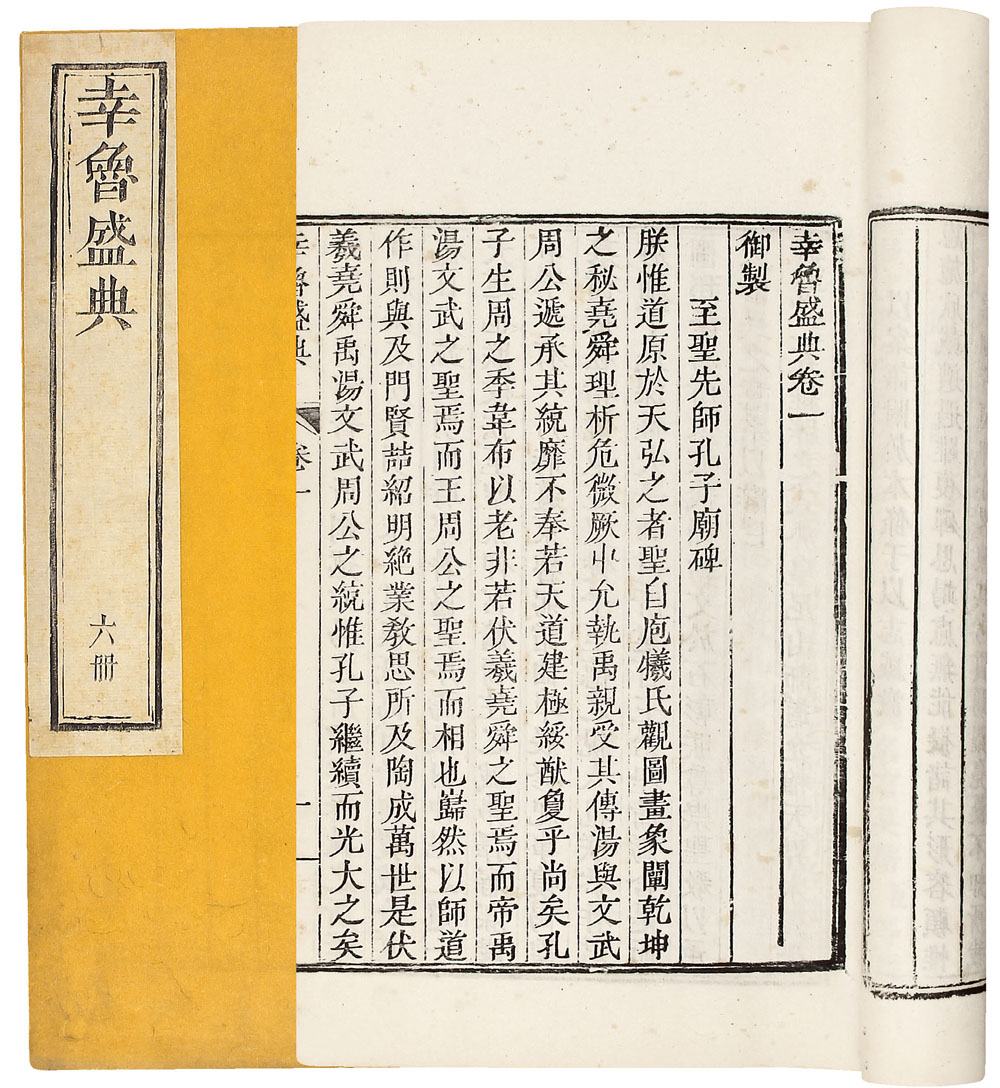 幸魯盛典
六冊
幸魯盛典卷一
御製
至聖先師孔子廟碑
朕惟道原於天弘之者聖自庖犧氏觀圖畫象闡乾坤
之秘堯舜理析危微厥中允執禹親受其傳湯與文武
周公遞承其統靡不奉若天道建極綏猷敻乎尚矣孔
子生周之季韋布以老非若伏羲堯舜之聖焉而帝禹
湯文武之聖焉而王周公之聖焉而相也巋然以師道
作則與及門賢喆紹明絕業教思所及陶成萬世是伏
羲堯舜禹湯文武周公之統惟孔子繼續而光大之矣
幸魯盛典 卷一 一